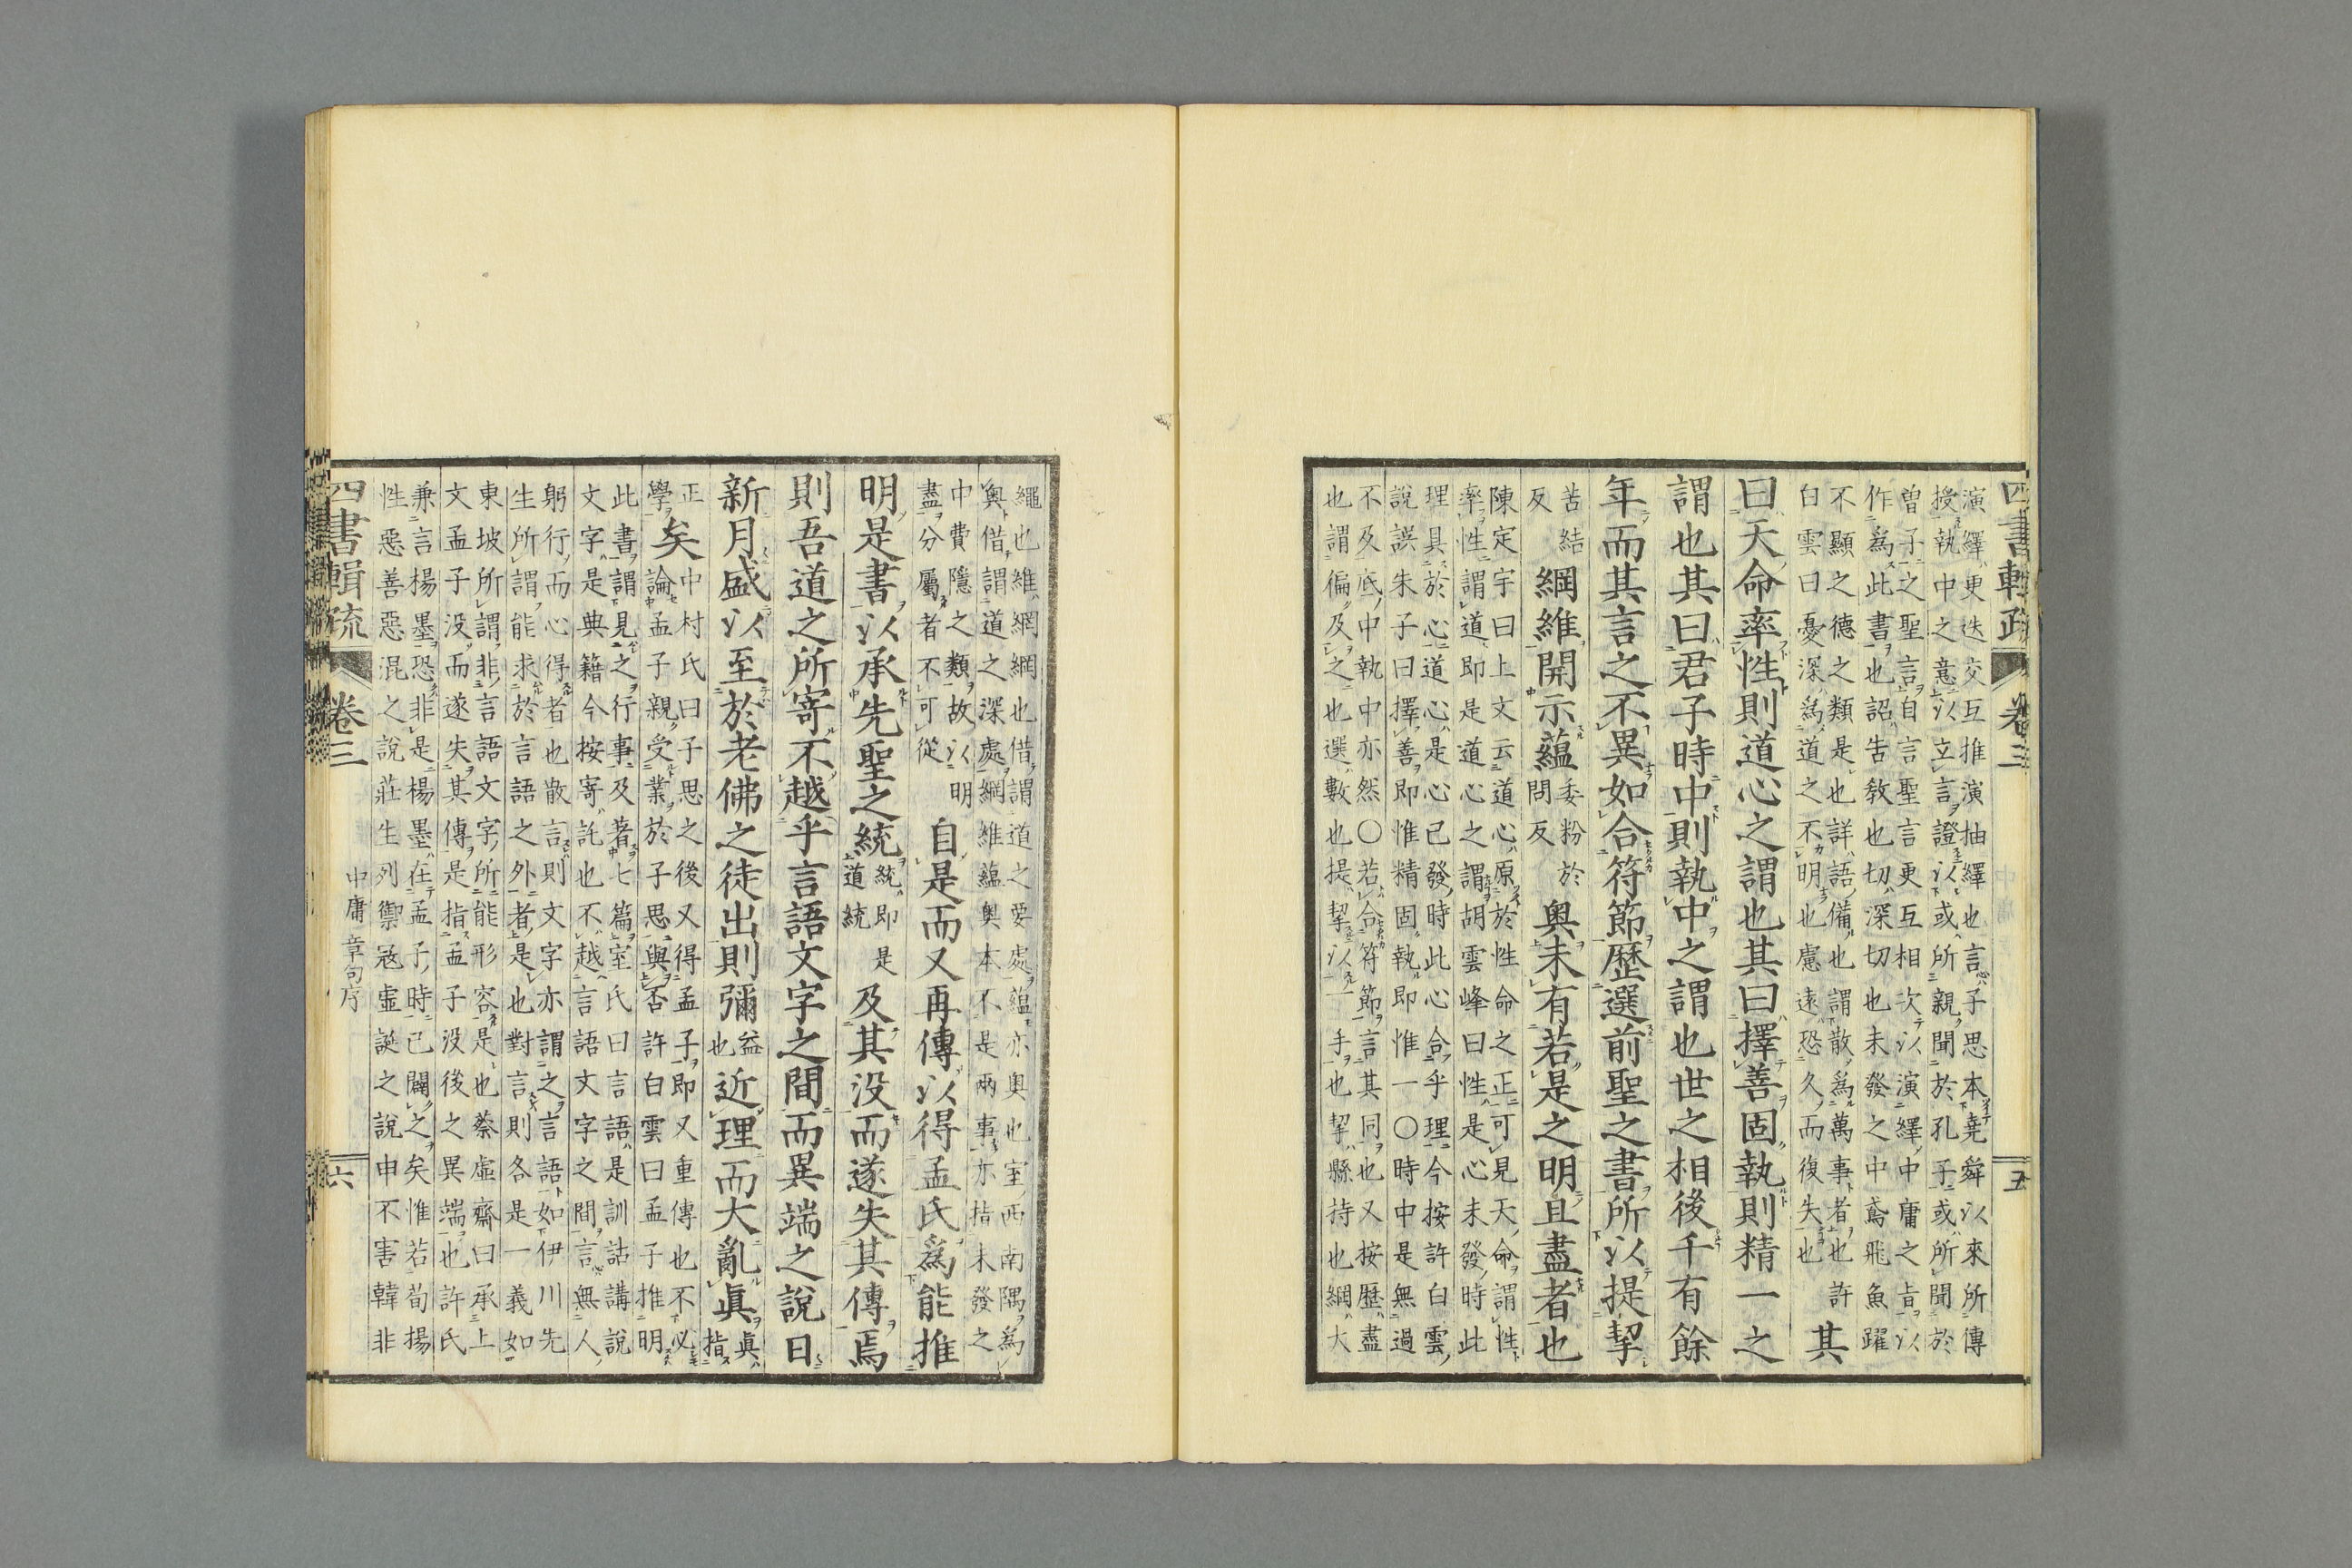 四書輯疏 卷三 五
演繹更迭交互推演抽繹也言子思本堯舜以來所傳
授執中之意以立言證以或所親聞於孔子或所聞於
曽子之聖言自言聖言更互相次以演繹中庸之旨以
作爲此書也詔告敎也切深切也未發之中鳶飛魚躍
不顯之德之類是也詳語備也謂散爲萬事者也許
白雲曰憂深爲道之不明也慮遠恐久而復失也
其
曰天命率性則道心之謂也其曰擇善固執則精一之
謂也其曰君子時中則執中之謂也世之相後千有餘
年而其言之不異如合符節歷選前聖之書所以提挈
苦結
反
綱維開示蘊
委粉於
問反
奥未有若是之明且盡者也
陳定宇曰上文云道心原於性命之正可見天命謂性
率性謂道即是道心之謂胡雲峰曰性是心未發時此
理具於心道心是心已發時此心合乎理今按許白雲
說誤朱子曰擇善即惟精固執即惟一〇時中是無過
不及底中執中亦然〇若合符節言其同也又按歷盡
也謂偏及之也選數也提挈以手也挈縣持也綱大
繩也維網綱也借謂道之要處蘊亦奥也室西南隅爲
奥借謂道之深處綱維蘊奥本不是兩事亦桔未發之
中費隱之類故以明
盡分屬者不可從
自是而又再傳以得孟氏爲能推
明是書以承先聖之統
統即是
道統
及其没而遂失其傳焉
則吾道之所寄不越乎言語文字之間而異端之說日
新月盛以至於老佛之徒出則彌
益
也
近理而大亂眞
眞
指
正
學
矣
中村氏曰子思之後又得孟子即又重傳也不必
論孟子親受業於子思與否許白雲曰孟子推明
此書謂見之行事及著七篇室氏曰言語是訓詁講說
文字是典籍今按寄託也不越言語文字之間言無人
躬行而心得者也散言則文字亦謂之言語如伊川先
生所謂能求於言語之外者是也對言則各是一義如
東坡所謂非言語文字所能形容是也蔡虛齋曰承上
文孟子没而遂失其傳是指孟子没後之異端也許氏
兼言楊墨恐非是楊墨在孟子時已闢之矣惟若荀揚
性惡善惡混之說莊生列禦寇虛誕之說申不害韓非
四書輯疏 卷三 中庸章句序 六